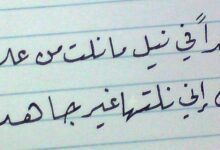 داً في نيل ما نلت من علا
إني نلتها غير جاهد